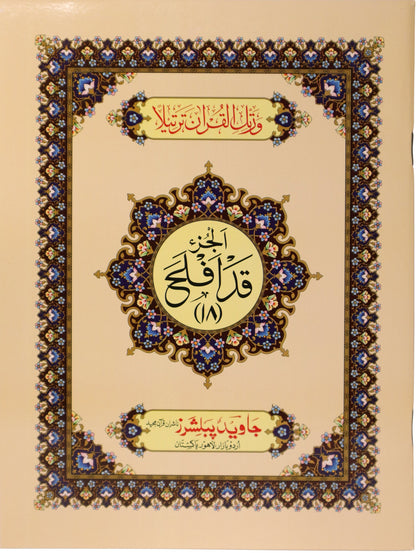 ورتل القرآن ترتیلا
الجزء
قد افلح
(۱۸)
جاوید پبلشرز ناشران قرآن مجید
اردو بازار لاهور پاکستان